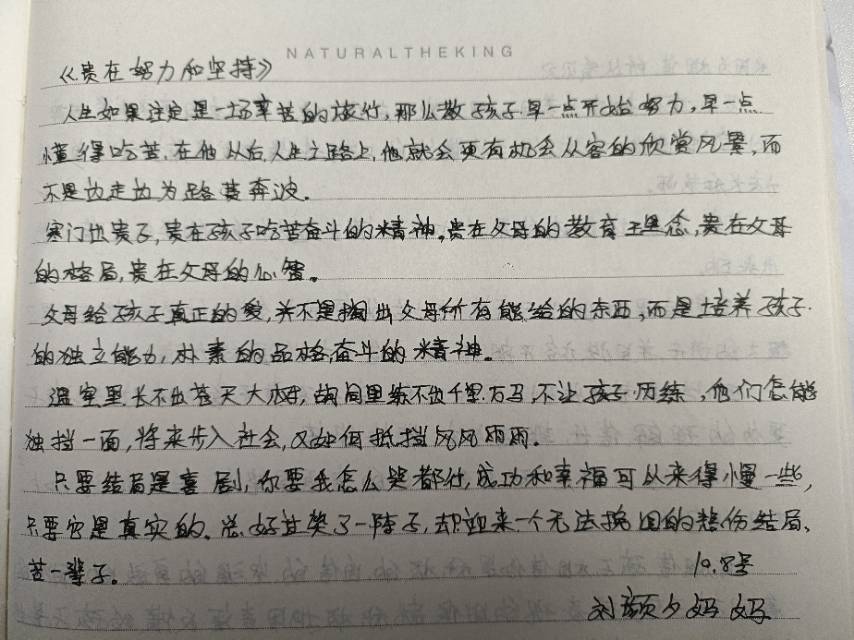 NATURALTHEKING
《贵在努力和坚持》
人生如果注定是一场辛苦的旅行,那么教孩子早一点开始努力,早一点
懂得吃苦,在他从后人生之路上,他就会更有机会从容的欣赏风景,而
不是边走边为路费奔波。
寒门出贵子,贵在孩子吃苦奋斗的精神。贵在父母的教育理念,贵在父母
的格局,贵在父母的心智。
父母给孩子真正的爱,并不是掏出父母所有能给的东西,而是培养孩子
的独立能力,朴素的品格,奋斗的精神。
温室里长不出苍天大树,胡同里练不出千里万马,不让孩子历练,他们怎能
独挡一面,将来步入社会,又如何抵挡风风雨雨。
只要结局是喜剧,你要我怎么哭都行,成功和幸福可以来得慢一些,
只要它是真实的。总好过笑了一阵子,却迎来一个无法挽回的悲伤结局、
苦一辈子。
10.8号
刘颜夕妈妈